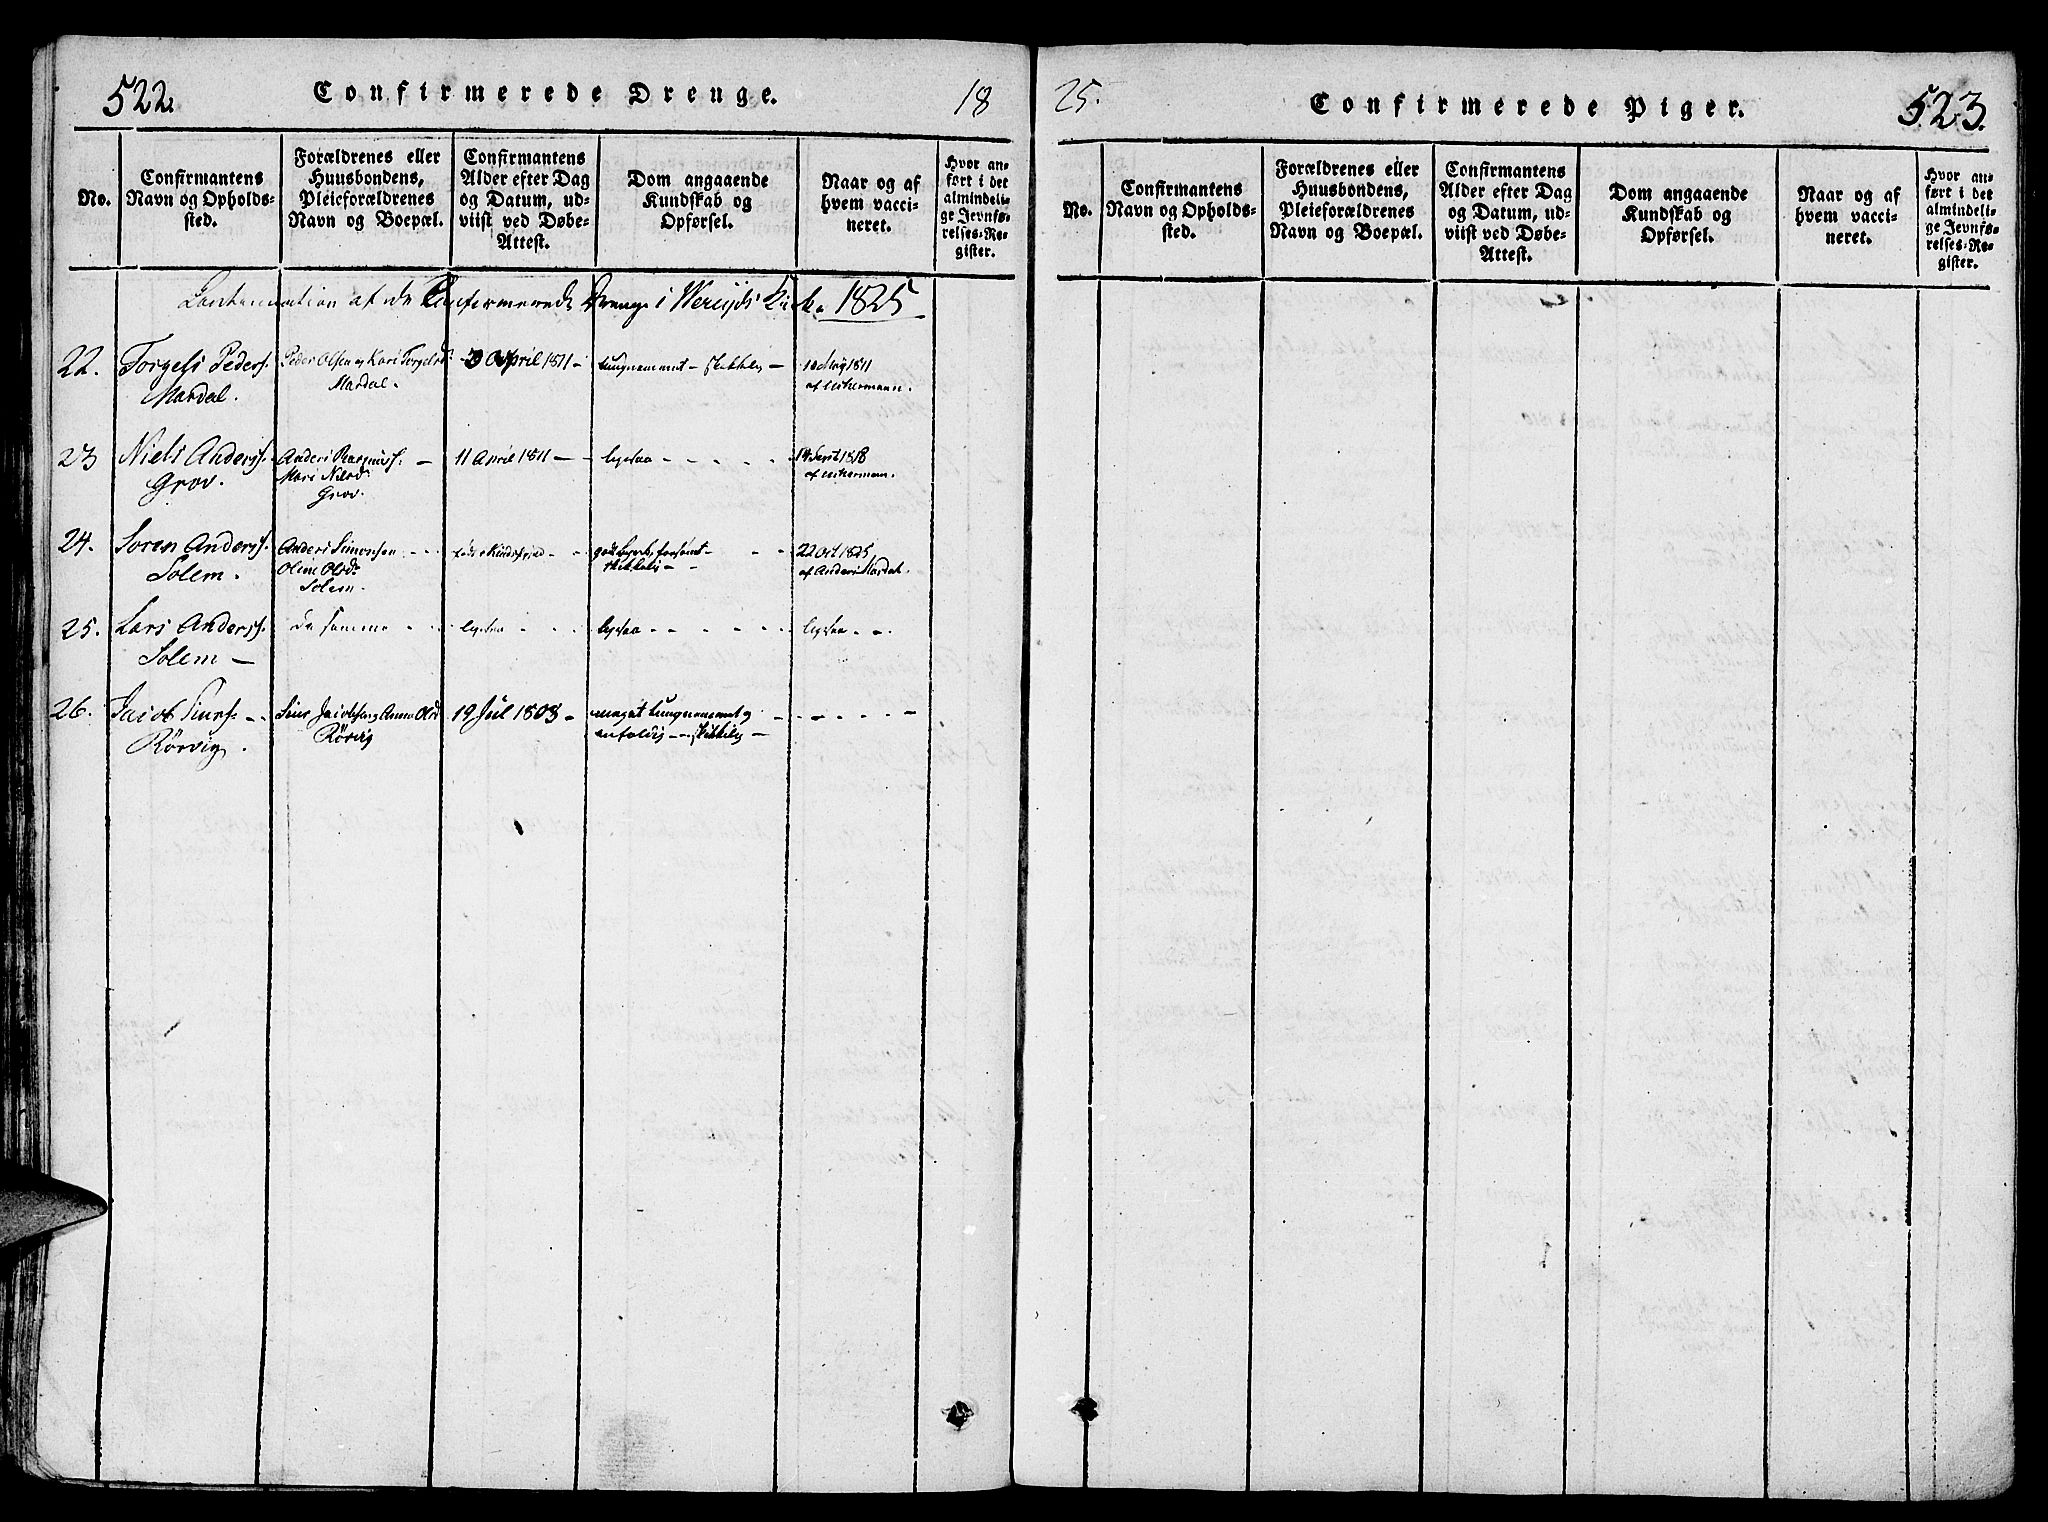 522.
Confirmerede Drenge.
18
No.
Confirmantens
Navn og Opholds-
sted.
Forældrenes eller
Huusbondens,
Pleieforældrenes
Navn og Boepæl.
Confirmantens
Alder efter Dag
og Datum, ud-
viist ved Døbe-
Attest.
Dom angaaende
Kundskab og
Opførsel.
Naar og af
hvem vacci-
neret.
Hvor an-
ført i det
almindeli-
ge Jevnfø-
relses-Re-
gister.
Continuation af de Confirmerede Drenge i Kirke 1825
22.
Torgels Peders.
Mardal.
Peder Olsen og Kari Torgelsd
Mardal.
April 1811 -
tungnemmet - skikkelig -
1811
af Uchermann.
23
Niels Anders.
Grov.
Anders Rasmuss. -
Mari Nilsd
Grov.
11 April 1811 -
ligesaa - - - -
14 Sept 1818
af Uchermann.
24.
Soren Anders.
Solem.
Anders Simonsen
Oline Olsd.
Solem.
forsømt -
skikkelig -
22 Oct. 1825
af Anders Mardal.
25.
Lars Anders.
Solem -
De samme
ligesaa
ligesaa - - - -
ligesaa - -
26.
Jacob Siurs. -
Rörvig.
Siur Jacobsen og Anne Olsd
Rörvig
19 Jul 1808 -
meget tungnemmet og
enfoldig - skikkelig -
25.
Confirmerede Piger.
523.
No.
Confirmantens
Navn og Opholds-
sted.
Forældrenes eller
Huusbondens,
Pleieforældrenes
Navn og Boepæl.
Confirmantens
Alder efter Dag
og Datum, ud-
viist ved Døbe-
Attest.
Dom angaaende
Kundskab og
Opførsel.
Naar og af
hvem vacci-
neret.
Hvor an-
ført i det
almindeli-
ge Jevnfø-
relses-Re-
gister.